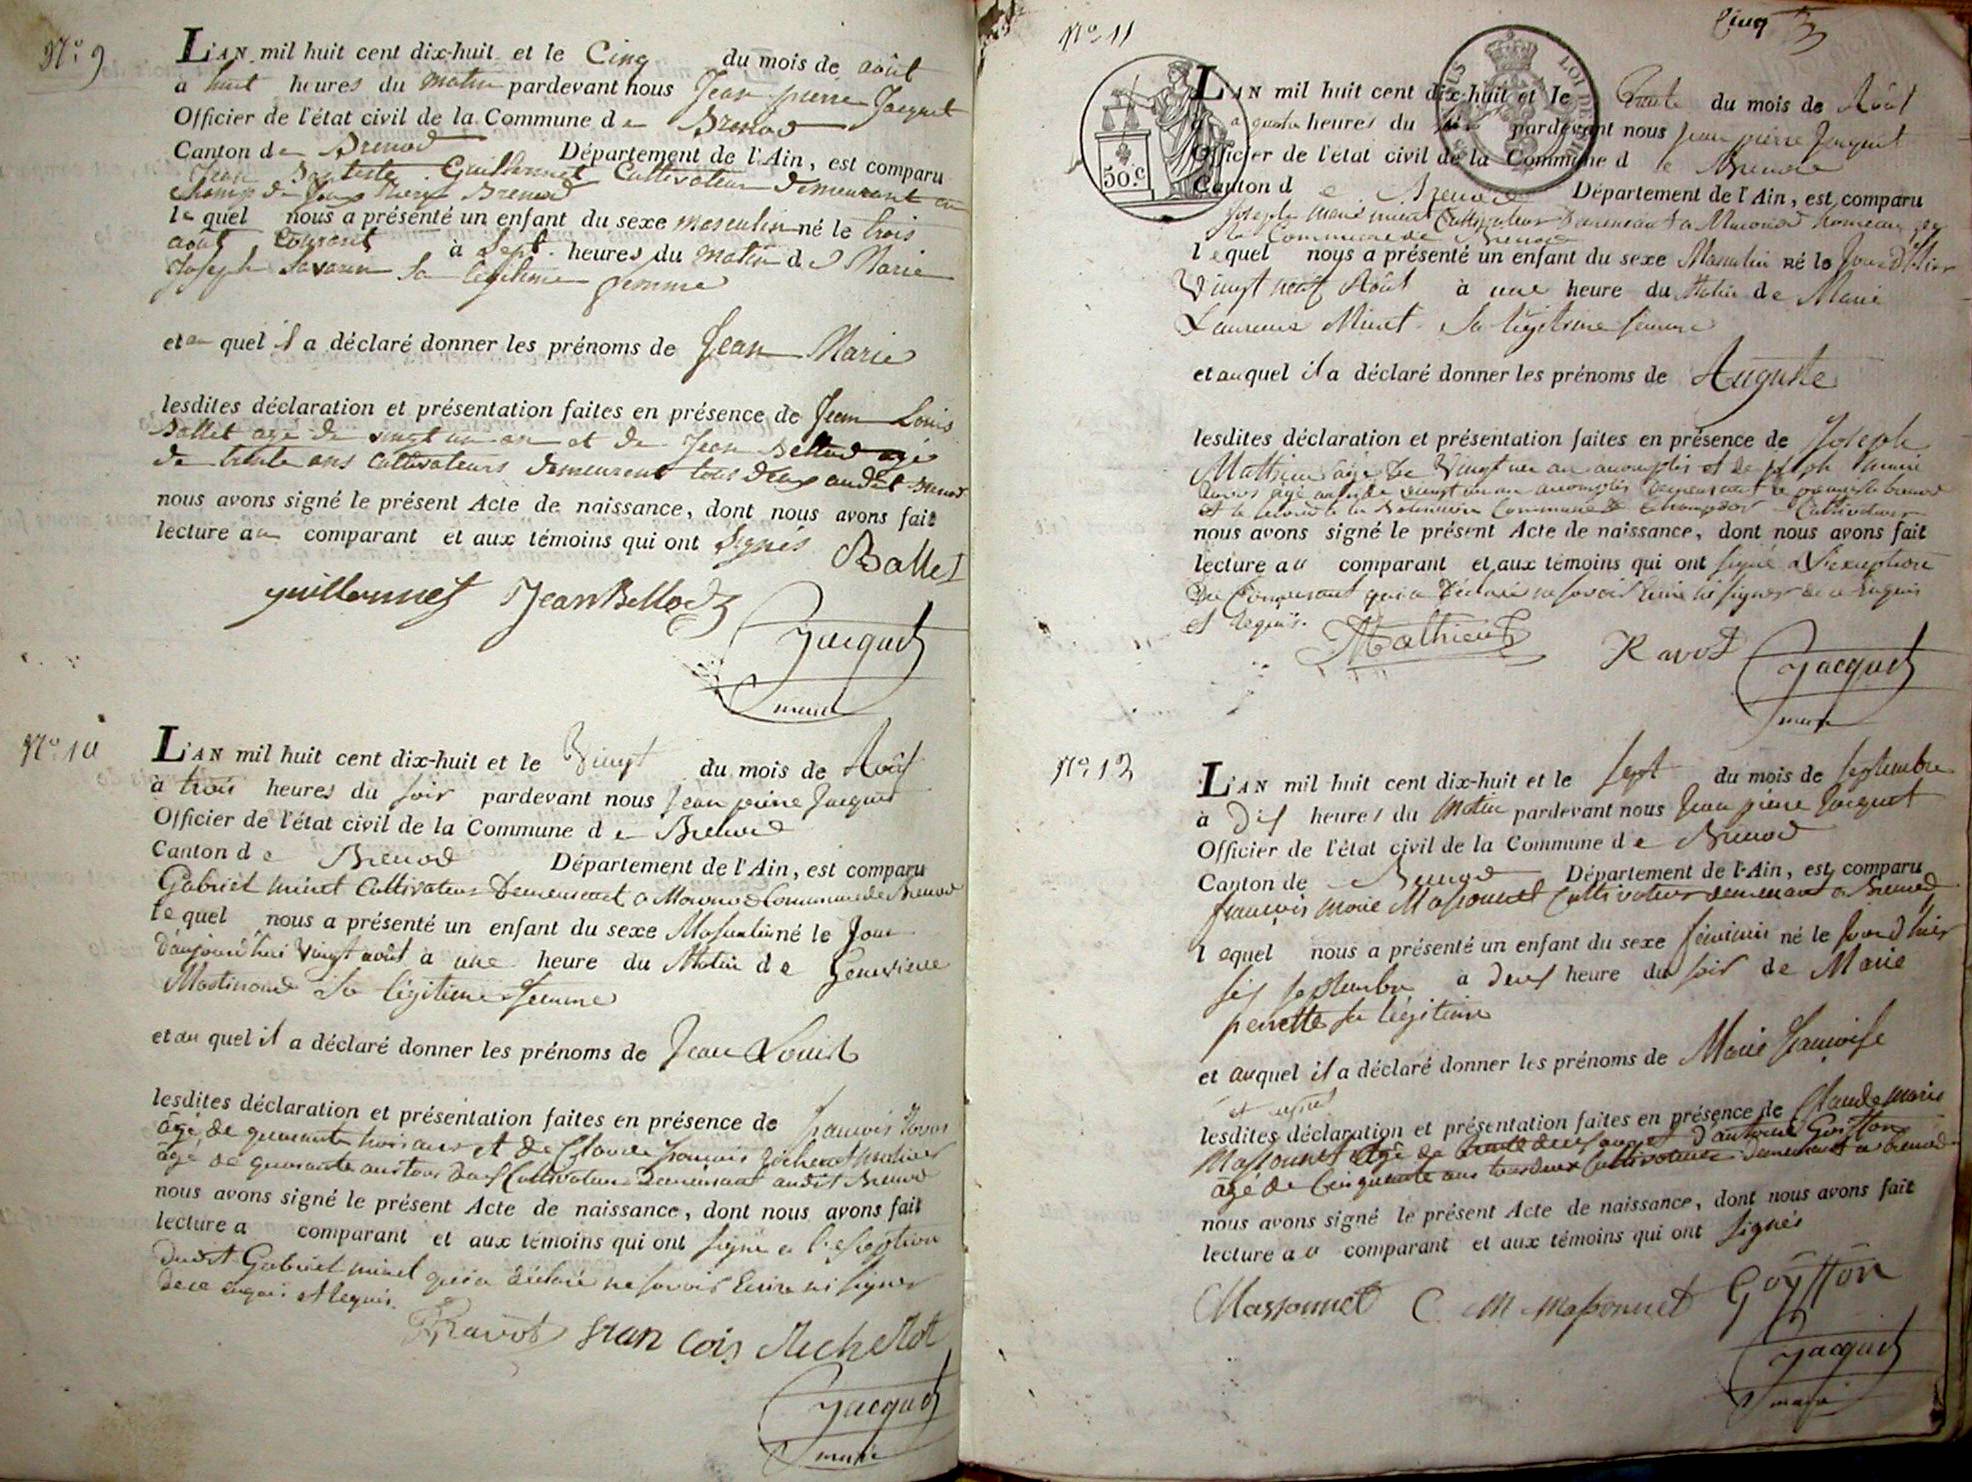 N.º 9
L'AN mil huit cent dix-huit et le Cinq du mois de août
a huit heures du matin pardevant nous Jean pierre Jacquet
Officier de l'état civil de la Commune de Brenod
Canton de Brenod Département de l'Ain, est comparu
Jean Baptiste Guillermet Cultivateur demeurant au
champ de Brenod
le quel nous a présenté un enfant du sexe masculin né le trois
août courant à sept heures du matin de Marie
Joseph Savarin sa légitime femme
et au quel il a déclaré donner les prénoms de Jean Marie
lesdites déclaration et présentation faites en présence de Jean Louis
Ballet agé de vingt un an et de Jean Bellod agé
de trente ans Cultivateurs demeurent tous deux audit Brenod
nous avons signé le présent Acte de naissance, dont nous avons fait
lecture au comparant et aux témoins qui ont Signés
Ballet
guillermet Jean Bellod
Jacquet
maire
N.º 10
L'AN mil huit cent dix-huit et le Vingt du mois de Août
à trois heures du soir pardevant nous Jean pierre Jacquet
Officier de l'état civil de la Commune de Brenod
Canton de Brenod Département de l'Ain, est comparu
Gabriel minet Cultivateur Demeurant a Commune de Brenod
le quel nous a présenté un enfant du sexe Masculin né le Jour
d'aujourd'hui Vingt août à une heure du Matin de Genevieve
Martinand Sa légitime femme
et au quel il a déclaré donner les prénoms de Jean Louis
lesdites déclaration et présentation faites en présence de françois
âgé de quarante trois ans et de Claude françois
âgé de quarante ans tous deux Cultivateurs Demeurant audit Brenod
nous avons signé le présent Acte de naissance, dont nous avons fait
lecture a comparant et aux témoins qui ont signé a l'exception
dudit Gabriel minet qui a déclaré ne savoir Ecrire ni signer
de ce enquis et requis.
Ravot fran cois Michellot
Jacquet
maire
Cinq
N.º 11
50.c
L'AN mil huit cent dix-huit et le Trente du mois de Août
à quatre heures du soir pardevant nous Jean pierre Jacquet
Officier de l'état civil de la Commune de Brenod
Canton de Brenod Département de l'Ain, est comparu
Joseph marie minet Cultivateur Demeurant a hameau
la Commune de Brenod
lequel nous a présenté un enfant du sexe Masculin né le Jour d'hier
Vingt neuf Août à une heure du Matin de Marie
Laurence Minet Sa légitime femme
et auquel il a déclaré donner les prénoms de Auguste
lesdites déclaration et présentation faites en présence de Joseph
Mathieu âgé de Vingt un an accomplis et de Joseph marie
Ravot agé aussi de vingt un an accomplis demeurant le premier a brenod
et le second a la Commune de Champdor Cultivateurs
nous avons signé le présent Acte de naissance, dont nous avons fait
lecture au comparant et aux témoins qui ont signé a l'exception
Du Comparant qui a Déclaré ne savoir Ecrire ni signer de ce Enquis
et Requis.
Mathieu Ravot
Jacquet
maire
N.º 12
L'AN mil huit cent dix-huit et le sept du mois de septembre
à Dix heures du Matin pardevant nous Jean pierre Jacquet
Officier de l'état civil de la Commune de Brenod
Canton de Brenod Département de l'Ain, est comparu
françois marie Massonnet Cultivateur demeurant a Brenod
lequel nous a présenté un enfant du sexe féminin né le Jour d'hier
six septembre à deux heure du soir de Marie
perrette sa légitime
et auquel il a déclaré donner les prénoms de Marie françoise
lesdites déclaration et présentation faites en présence de Claude marie
Massonnet âgé de trente deux ans et d'antoine Goiffon
âgé de Cinquante ans tous deux Cultivateurs demeurant a brenod
nous avons signé le présent Acte de naissance, dont nous avons fait
lecture au comparant et aux témoins qui ont signés
Massonnet C M massonnet Goyffon
Jacquet
maire